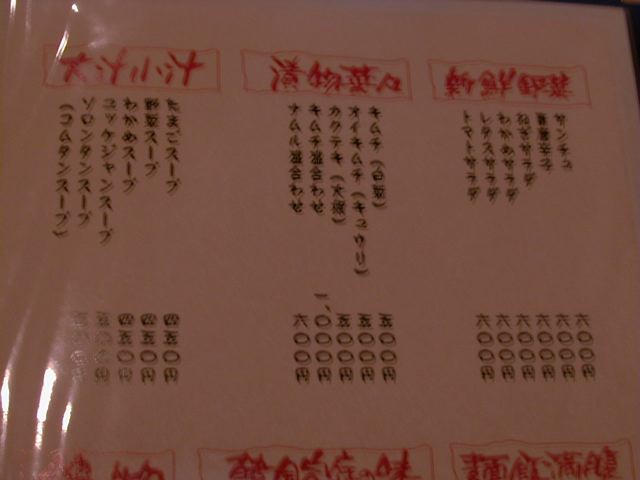 新鮮野菜
サンチュ 六〇〇円
青唐辛子 六〇〇円
ねぎサラダ 六〇〇円
わかめサラダ 六〇〇円
レタスサラダ 六〇〇円
トマトサラダ 六〇〇円
漬物菜々
キムチ（白菜） 五〇〇円
オイキムチ（キュウリ） 五〇〇円
カクテキ（大根） 五〇〇円
キムチ盛合わせ 一、〇〇〇円
ナムル盛合わせ 六〇〇円
大汁小汁
たまごスープ 四五〇円
野菜スープ 四五〇円
わかめスープ 四五〇円
ユッケジャンスープ
ソロンタンスープ
（コムタンスープ）
麺飯満腹
韓国家庭の味
物